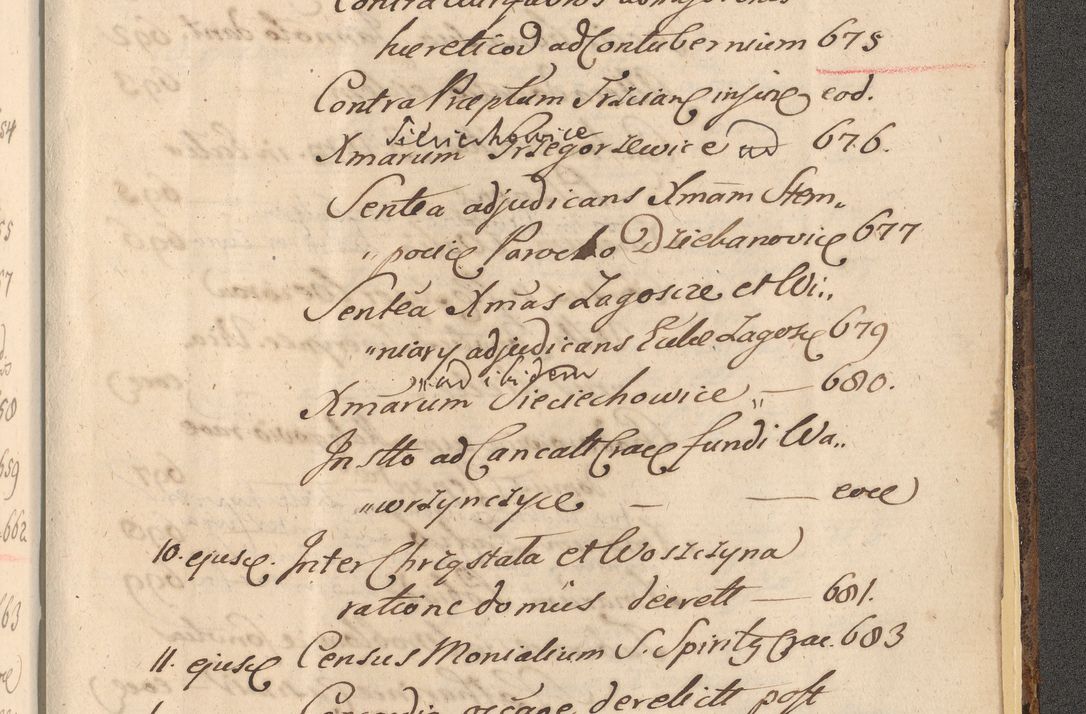 hæreticoꝝ ad Contubernium 675
Contra Præptum Trzcianæ injinæ eod.
Sieciechowice
Xmarum Przegorzewice ad 676.
Sentēa adjudicans Xmam Stem„
„pocicæ Parocho Dziebanovicæ 677
Sentēa Xmas Zagoscze et Wi„
„niary adjudicans Eccleæ Zagoscæ 679
„ ad ibidem
Xmarum Sieciechowice „ — 680.
In stto ad Cancall Cracæ fundi Wa„
„wrzynczyce — — eod
10. ejusd. Inter Chrząstała et Woszczyna
ratione domus decrett — 681.
11. ejusd Census Monialium S. Spiritq Crac. 683
derelictt post
54
55
57
58
659
662
663